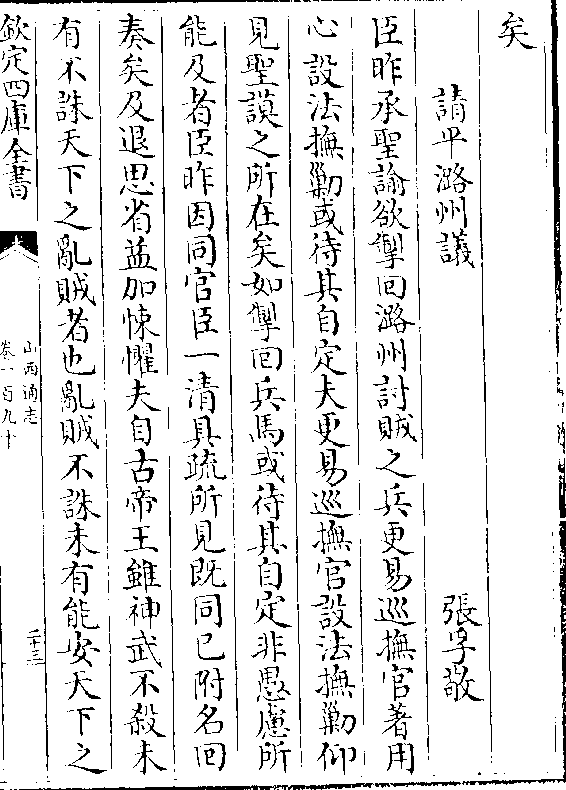 矣
請平潞州議　張孚敬
臣昨承聖諭欲掣回潞州討賊之兵更易巡撫官著用
心設法撫勦或待其自定夫更易巡撫官設法撫勦仰
見聖謨之所在矣如掣回兵馬或待其自定非愚慮所
能及者臣昨因同官臣一清具疏所見既同已附名回
奏矣及退思省益加悚懼夫自古帝王雖神武不殺未
有不誅天下之亂賊者也亂賊不誅未有能安天下之
欽定四庫全書
山西通志
卷一百九十
二十三